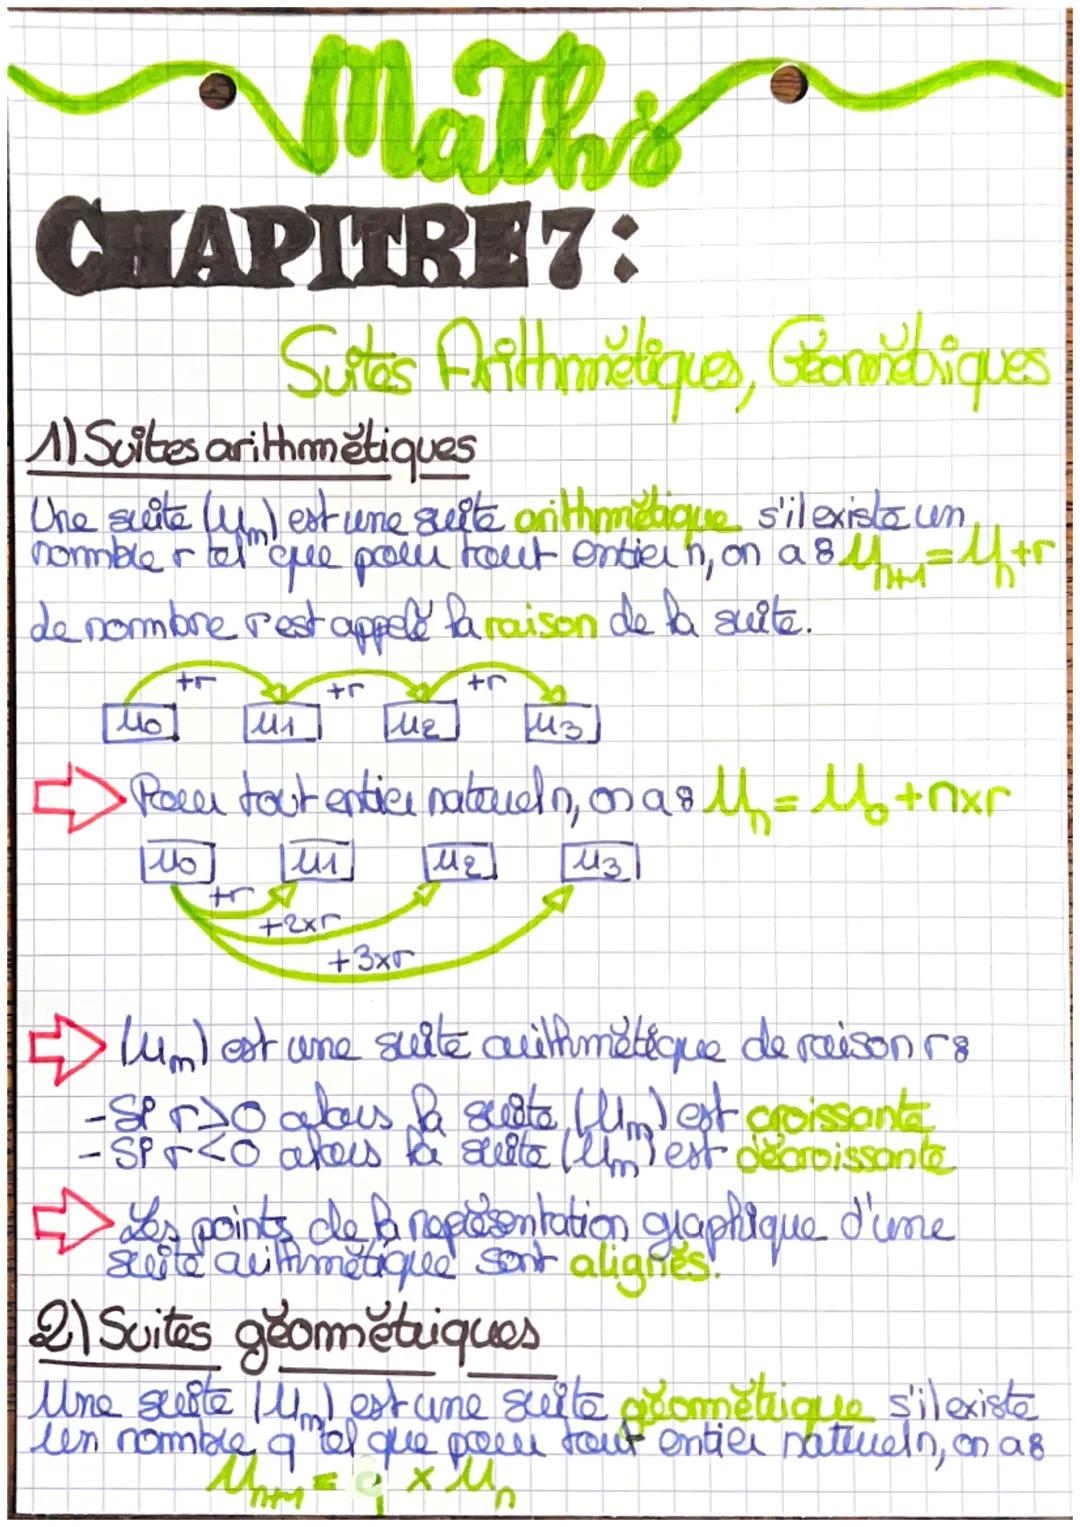 Maths
CHAPITRE 7 :
Suites Arithmétiques, Géométriques
1) Suites arithmétiques
Une suite (un) est une suite arithmétique s'il existe un
nombre r tel que pour tout entier n, on a : Un+1 = Un+r
Le nombre r est appelé la raison de la suite.
+r +r +r
u0 u1 u2 u3
Pour tout entier naturel n, on a : Un = U0 + n×r
u0 u1 u2 u3
+r
+2×r
+3×r
(un) est une suite arithmétique de raison r :
- Si r>0 alors la suite (Un) est croissante
- Si r<0 alors la suite (Un) est décroissante
Les points de la représentation graphique d'une
suite arithmétique sont alignés.
2) Suites géométriques
Une suite (Un) est une suite géométrique s'il existe
un nombre q tel que pour tout entier naturel n, on a :
Un+1 = q × Un